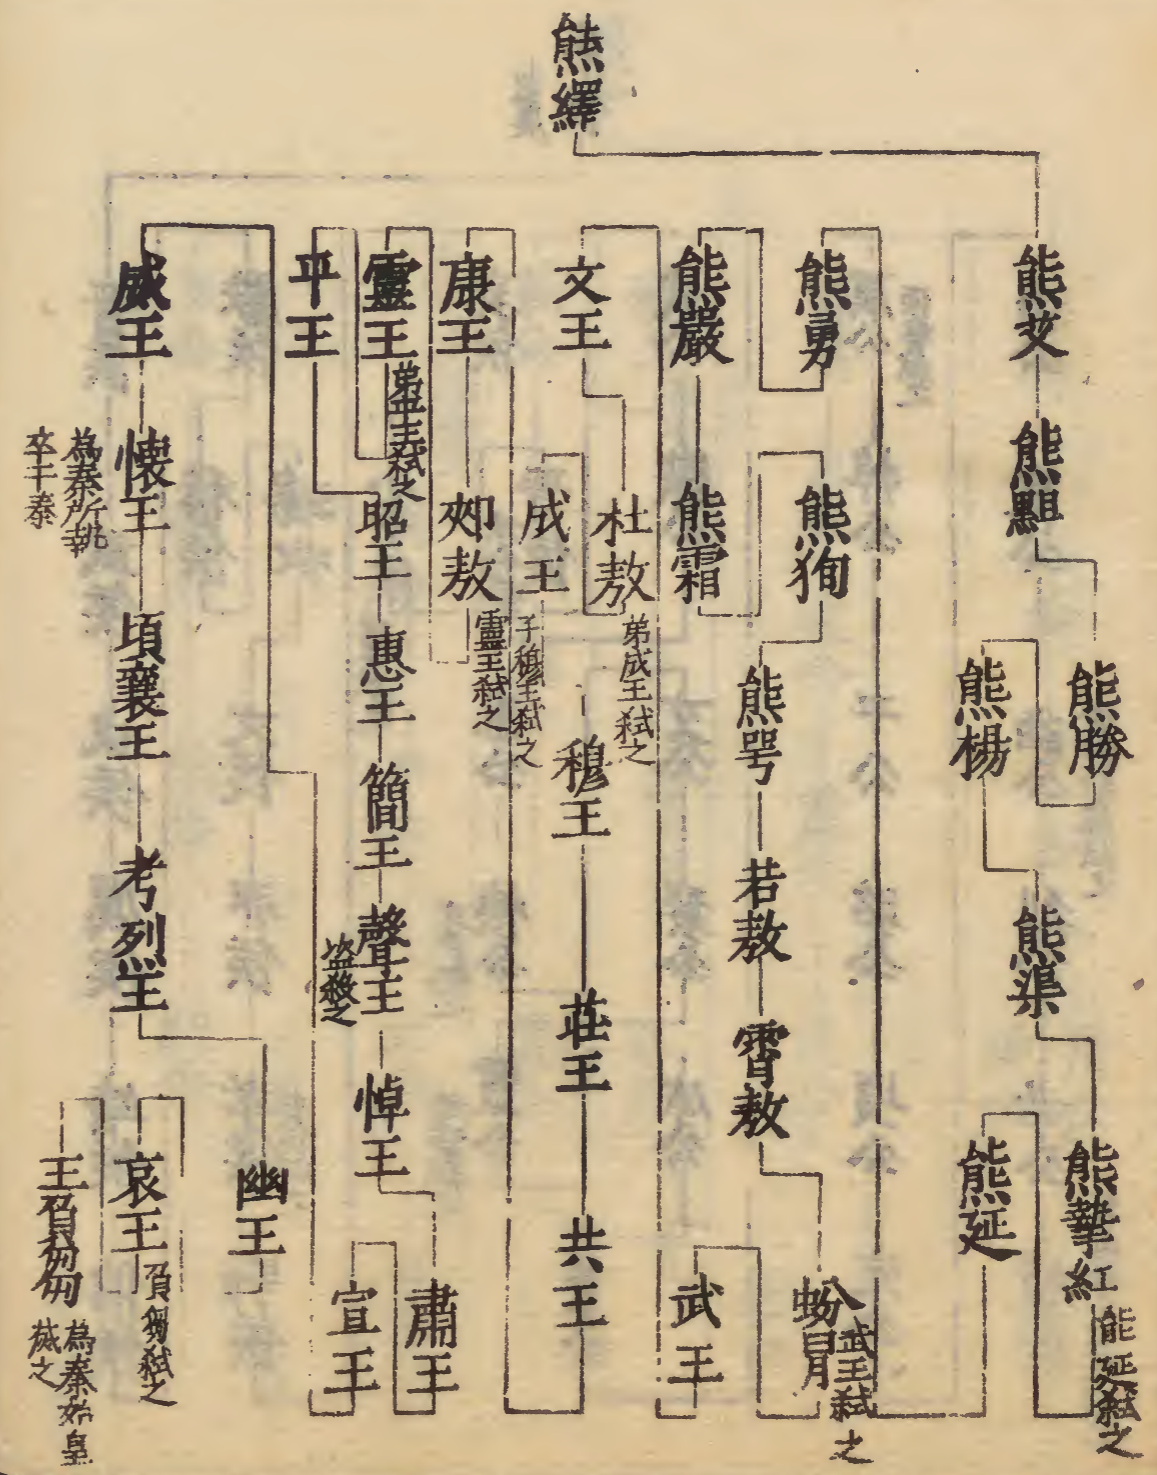 熊繹
熊艾
熊䵣
熊勝
熊楊
熊渠
熊摯紅
熊延弒之
熊延
熊勇
熊嚴
熊霜
熊狥
熊咢
若敖
霄敖
蚡冒
武王弒之
武王
文王
杜敖
弟成王弒之
成王
子穆王弒之
穆王
莊王
共王
康王
郟敖
靈王弒之
靈王
弟平王弒之
平王
昭王
惠王
簡王
聲王
盜殺之
悼王
肅王
宣王
威王
懷王
為秦所執
卒于秦
頃襄王
考烈王
幽王
哀王
負芻弒之
王負芻
為秦始皇
滅之